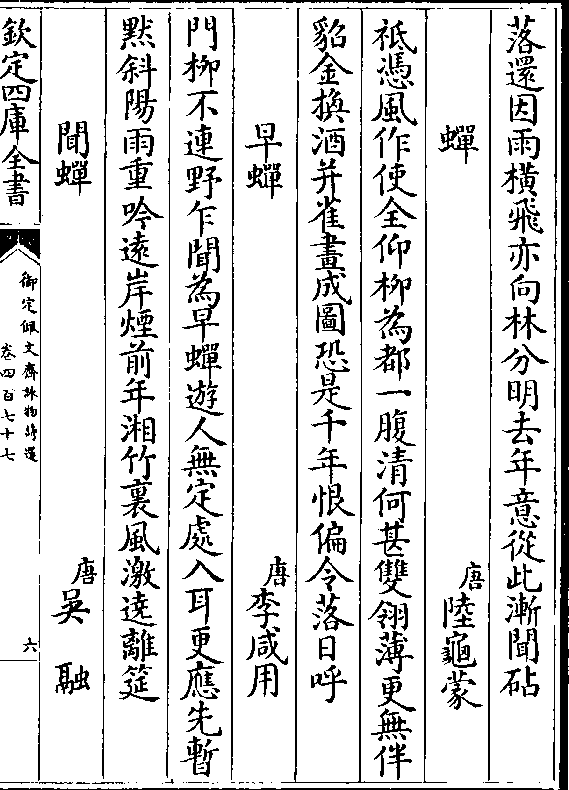 落還因雨橫飛亦向林分明去年意從此漸聞砧
蟬 唐 陸龜蒙
祗憑風作使全仰柳為都一腹清何甚雙翎薄更無伴
貂金換酒并雀畫成圖恐是千年恨偏令落日呼
早蟬 唐 李咸用
門柳不連野乍聞為早蟬遊人無定處入耳更應先暫
默斜陽雨重吟遠岸煙前年湘竹裏風激遶離筵
聞蟬 唐 吳融
欽定四庫全書
御定佩文齋詠物詩選
卷四百七十七
六